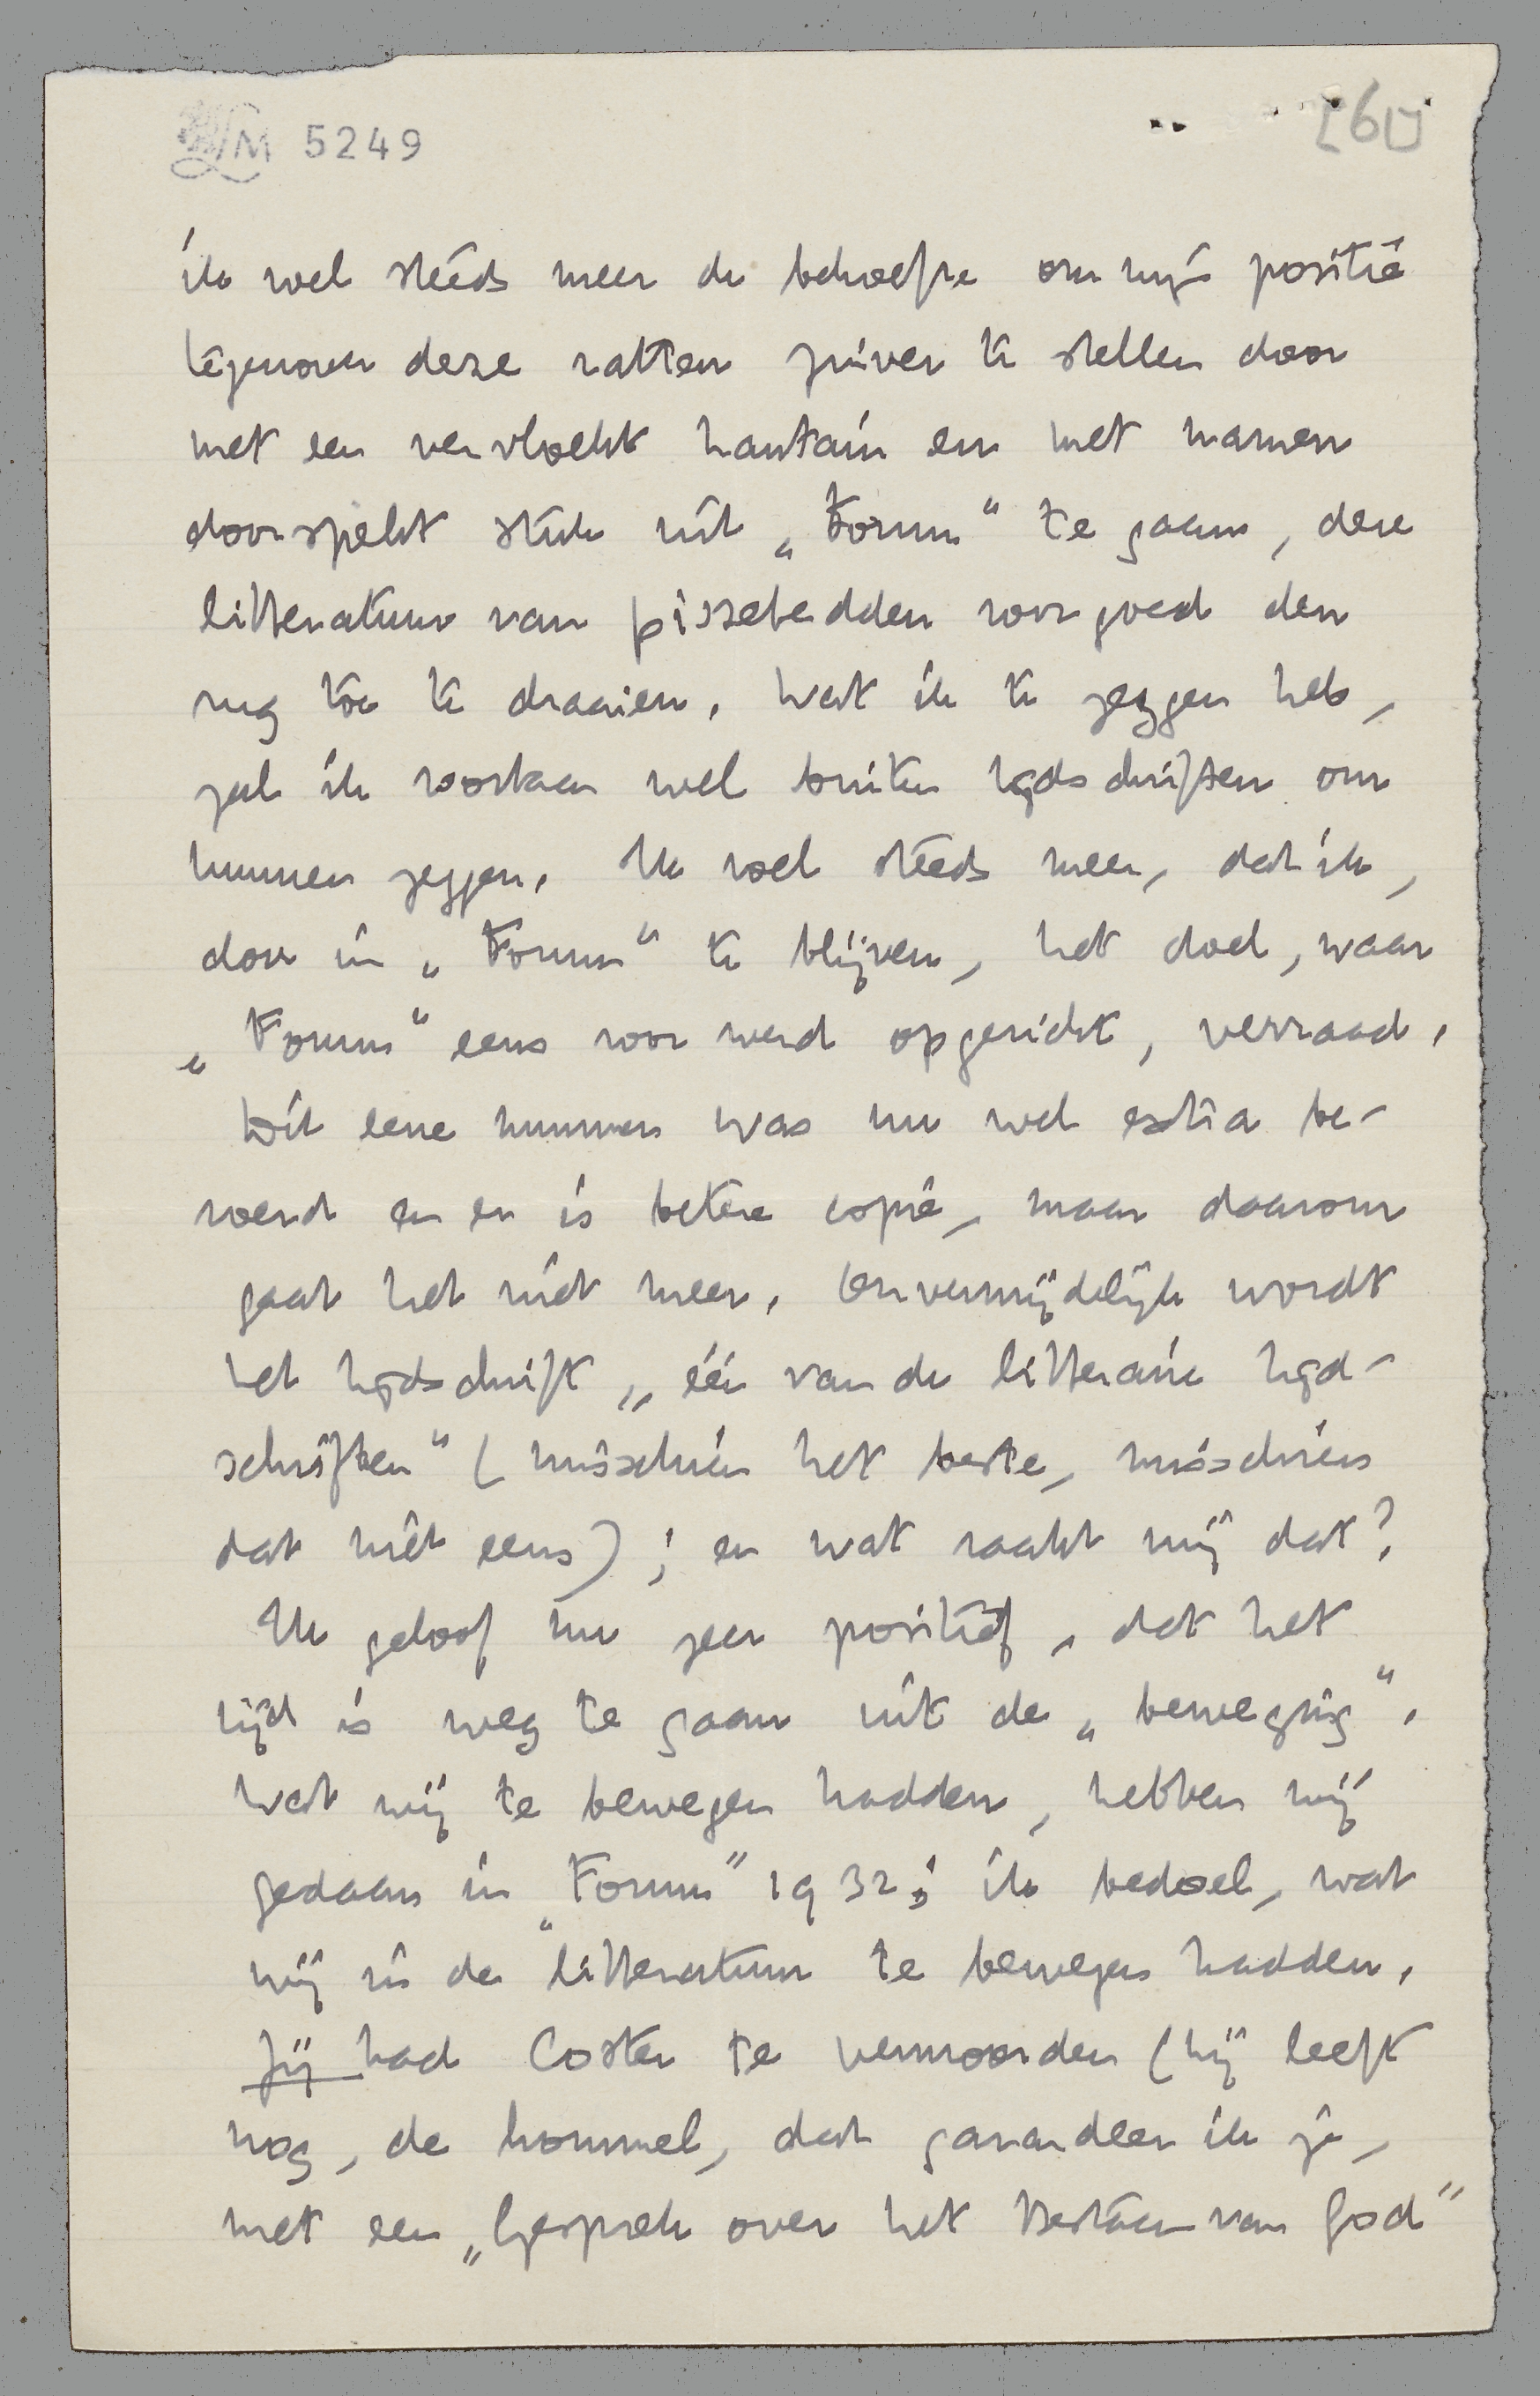 LM 5249
[60]
ik wel steeds meer de behoefte om mijn positie
tegenover deze ratten zuiver te stellen door
met een vervloekt hautain en met namen
doorspekt stuk uit „Forum" te gaan, deze
litteratuur van pissebedden voorgoed den
rug toe te draaien. Wat ik te zeggen heb,
zal ik voortaan wel buiten tijdschriften om
kunnen zeggen. Ik voel steeds meer, dat ik,
door in „Forum" te blijven, het doel, waar
„Forum" eens voor werd opgericht, verraad.
Dit eene nummer was nu wel extra be-
roerd en er is betere copie, maar daarom
gaat het niet meer. Onvermijdelijk wordt
het tijdschrift „één van de litteraire tijd-
schriften" (misschien het beste, misschien
dat niet eens); en wat raakt mij dat?
Ik geloof nu zeer positief, dat het
tijd is weg te gaan uit de „beweging".
Wat wij te bewegen hadden, hebben wij
gedaan in „Forum" 1932; ik bedoel, wat
wij in de litteratuur te bewegen hadden.
Jij had Coster te vermoorden (hij leeft
nog, de hommel, dat garandeer ik je,
met een „Gesprek over het Bestaan van God"